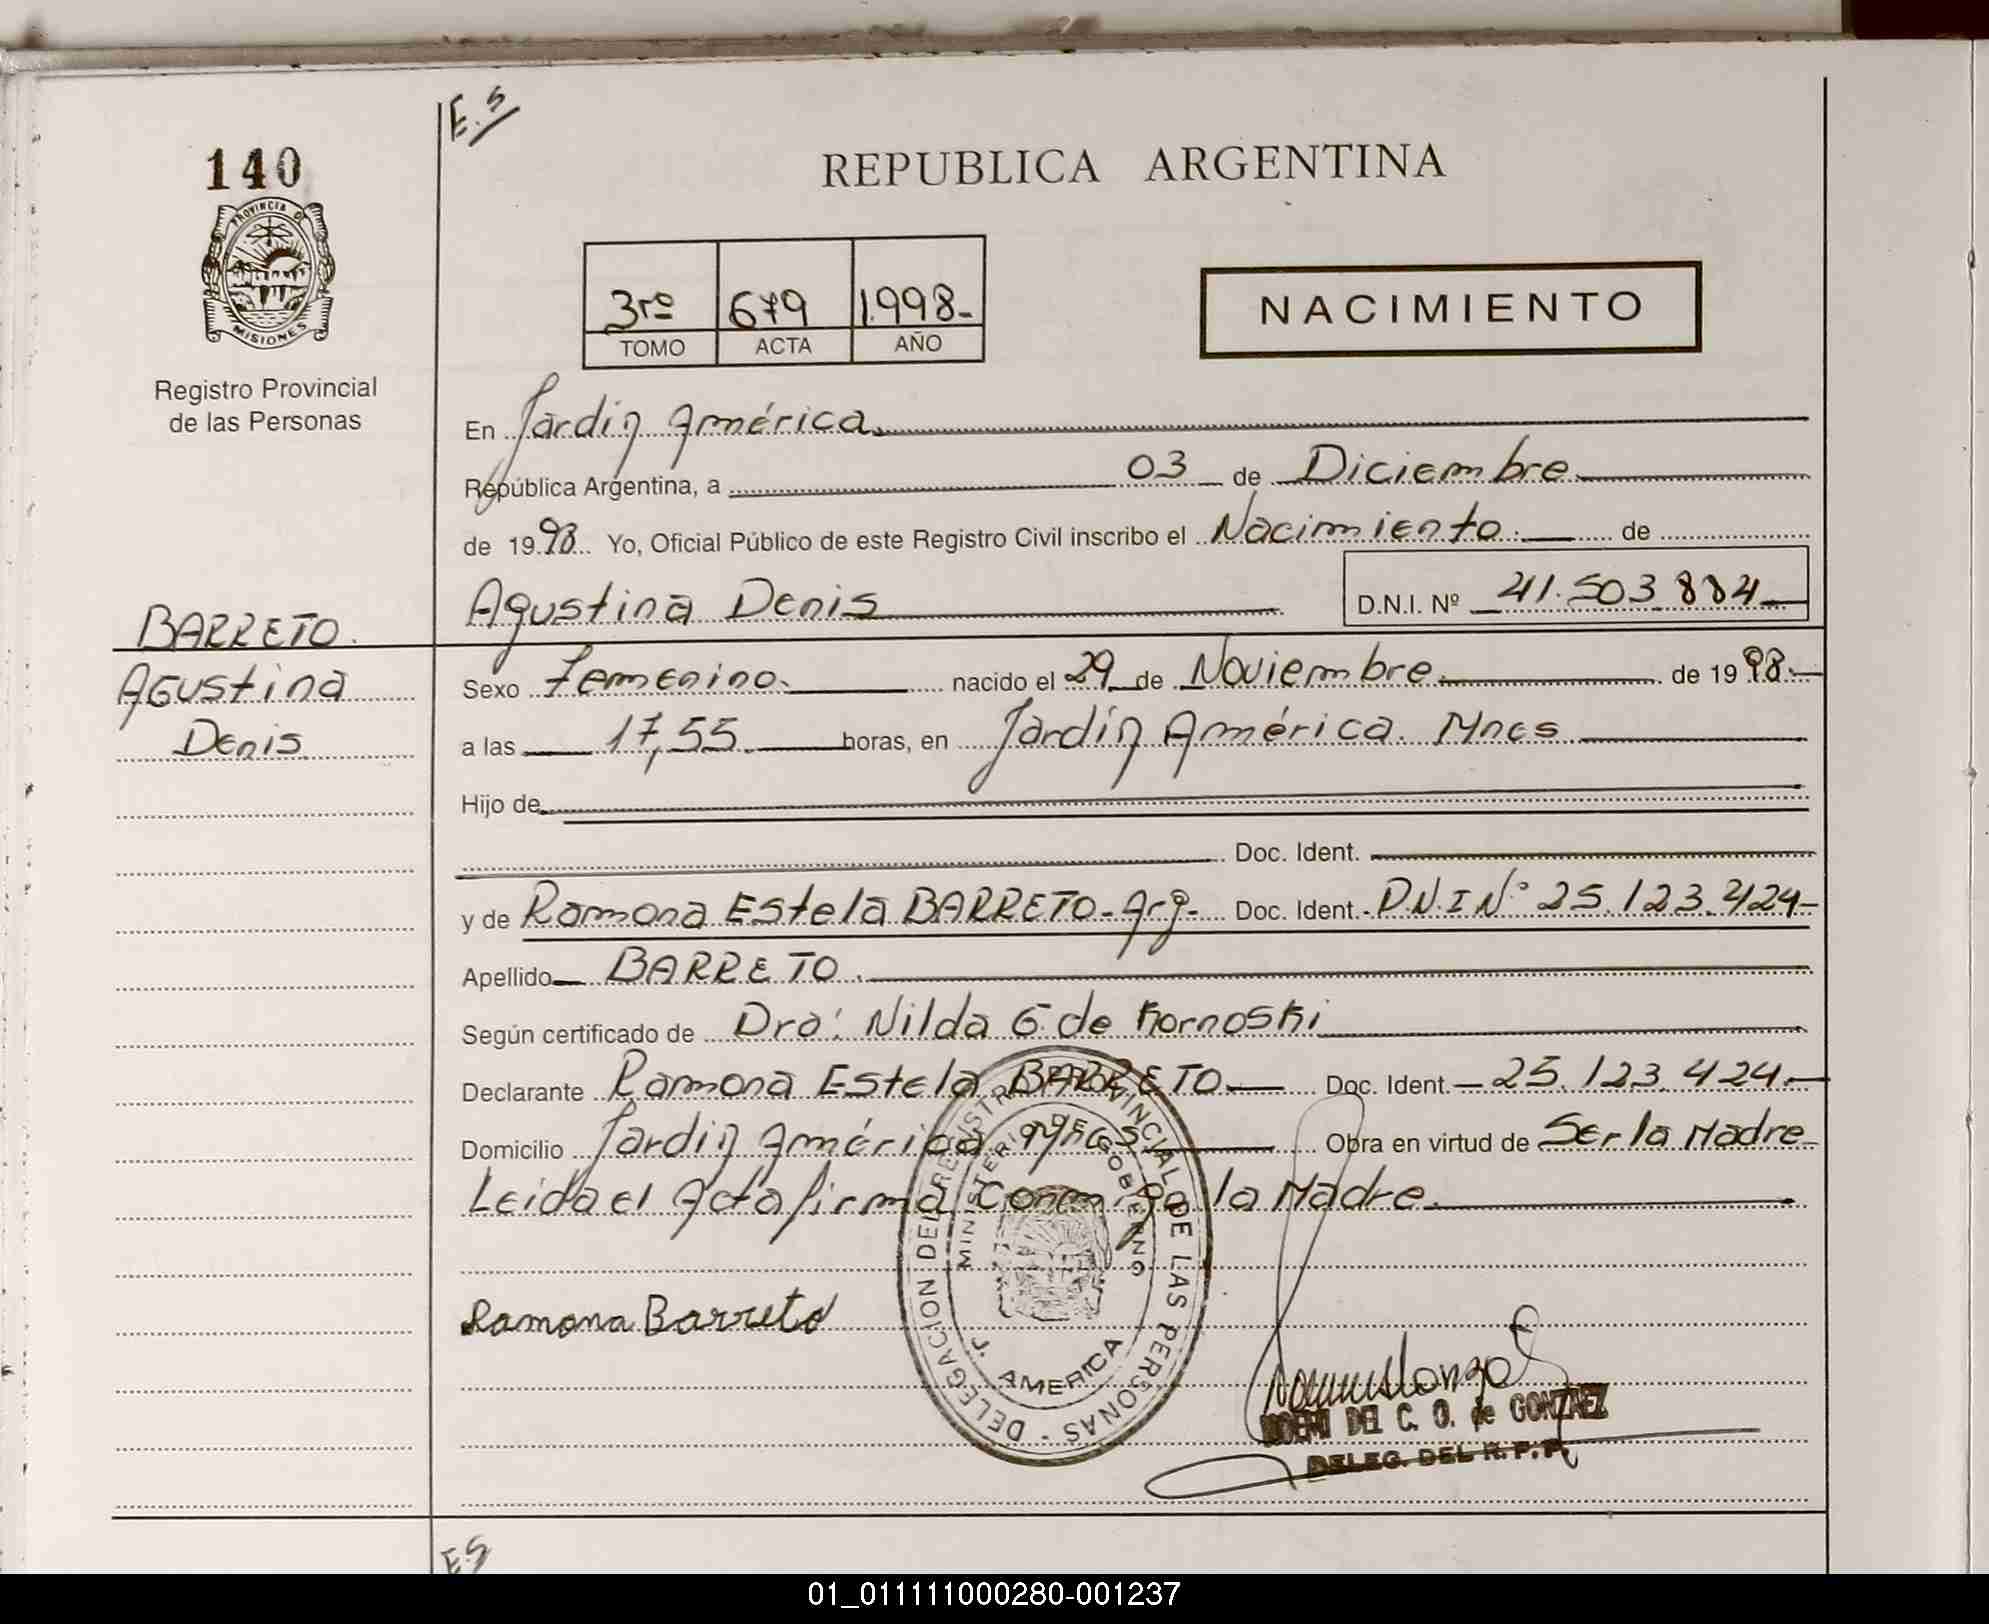 E.S
140
REPUBLICA ARGENTINA
PROVINCIA D
MISIONES
Registro Provincial
de las Personas
3ro 679 1.998-
TOMO ACTA AÑO
NACIMIENTO
En Jardín América.
República Argentina, a 03 de Diciembre
de 19 98 Yo, Oficial Público de este Registro Civil inscribo el Nacimiento. de
Agustina Denis D.N.I. Nº 41.503.884
BARRETO.
Agustina
Denis
Sexo Femenino. nacido el 29 de Noviembre de 19 98.
a las 17,55 horas, en Jardín América. Mnes
Hijo de
Doc. Ident.
y de Ramona Estela BARRETO-Arg- Doc. Ident. D.N.I Nº 25.123.424-
Apellido BARRETO.
Según certificado de Dra: Nilda G de Kornoski
Declarante Ramona Estela BARRETO Doc. Ident. 25.123.424-
Domicilio Jardín América Mnes Obra en virtud de Ser la Madre
Leida el Acta firma Conmigo la Madre.
Ramona Barreto
DELEGACION DEL REGISTRO PROVINCIAL DE LAS PERSONAS -
MINISTERIO DE GOBIERNO
J. AMERICA
NOEMI DEL C. O. de GONZALEZ
DELEG. DEL R.P.P.
E.S
01_011111000280-001237